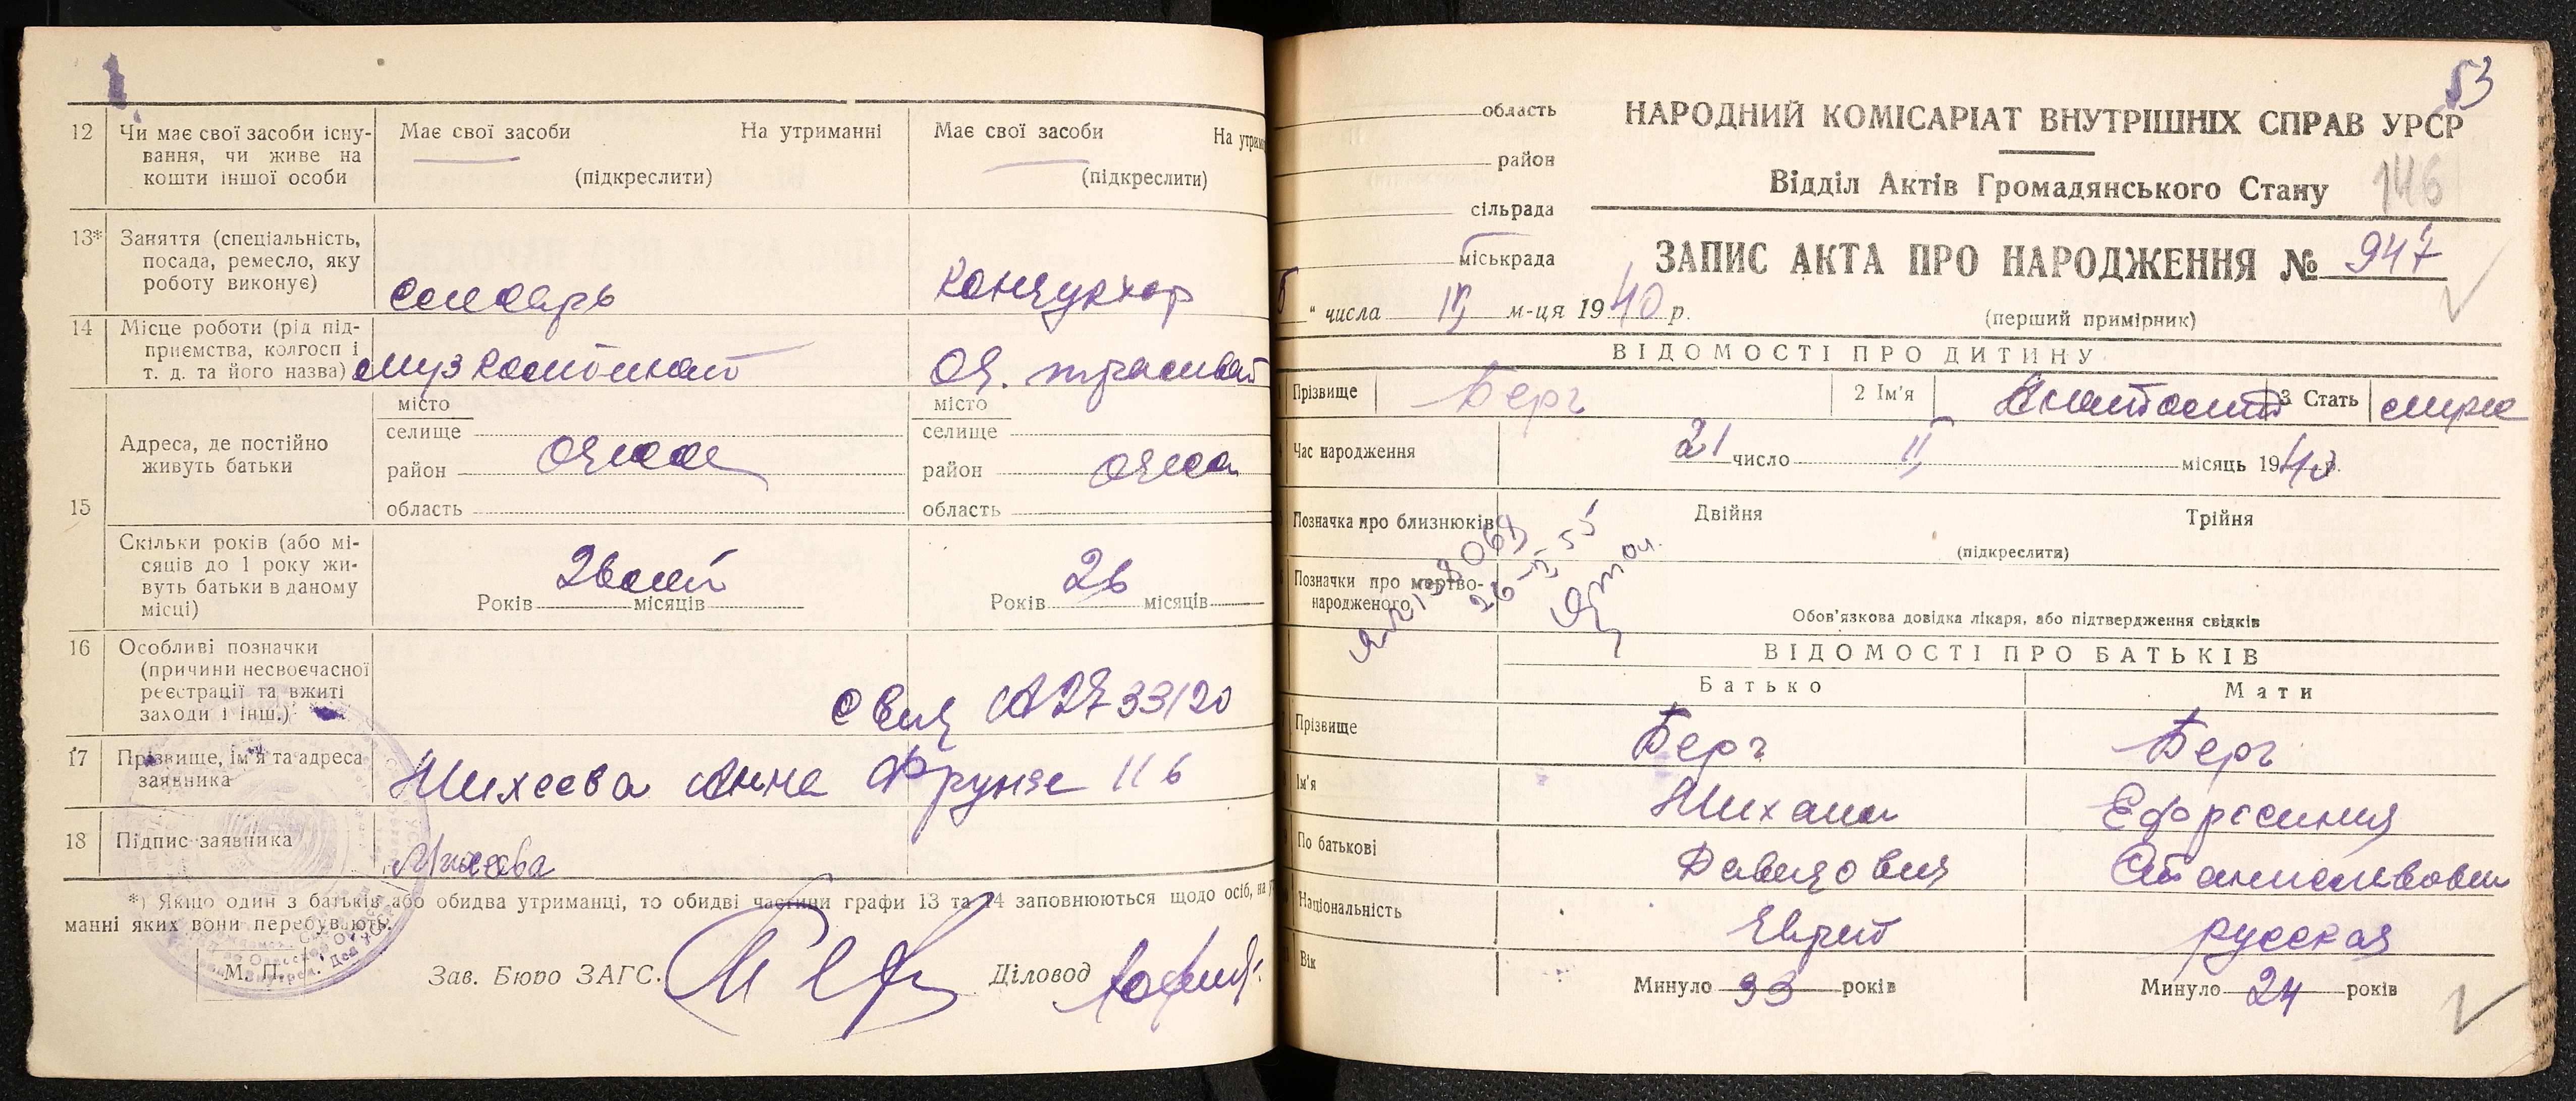 12 Чи має свої засоби існу-
вання, чи живе на
кошти іншої особи
Має свої засоби На утриманні
(підкреслити)
Має свої засоби На утрим
(підкреслити)
13* Заняття (спеціальність,
посада, ремесло, яку
роботу виконує)
слесарь
кондуктор
14 Місце роботи (рід під-
приємства, колгосп і
т. д. та його назва)
муз комбинат
Од. трамвай
15 Адреса, де постійно
живуть батьки
місто
селище
район Одесса
область
місто
селище
район Одесса
область
Скільки років (або мі-
сяців до 1 року жи-
вуть батьки в даному
місці)
Років місяців
Років 26 місяців
16 Особливі позначки
(причини несвоєчасної
реєстрації та вжиті
заходи і інш.)
17 Прізвище, ім'я та адреса
заявника
Михеева Анна Фрунзе 116
18 Підпис заявника
Михеева
*) Якщо один з батьків або обидва утриманці, то обидві частини графи 13 та 14 заповнюються щодо осіб, на у
манні яких вони перебувають.
М. П. Зав. Бюро ЗАГС. Діловод
53
область
район
сільрада
міськрада
НАРОДНИЙ КОМІСАРІАТ ВНУТРІШНІХ СПРАВ УРСР
Відділ Актів Громадянського Стану 146
ЗАПИС АКТА ПРО НАРОДЖЕННЯ № 947
" числа IV м-ця 1940 р.
(перший примірник)
ВІДОМОСТІ ПРО ДИТИНУ
Прізвище Берг 2 Ім'я Анатолий 3 Стать
Час народження 21 число II місяць 1940 р.
Позначка про близнюків Двійня Трійня
(підкреслити)
Позначки про мертво-
народженого
Обов'язкова довідка лікаря, або підтвердження свідків
ВІДОМОСТІ ПРО БАТЬКІВ
Батько Мати
Прізвище Берг Берг
Ім'я Михаил Ефросиния
По батькові Давидович Станиславовн
Національність Еврей русская
Вік Минуло 33 років Минуло 24 років